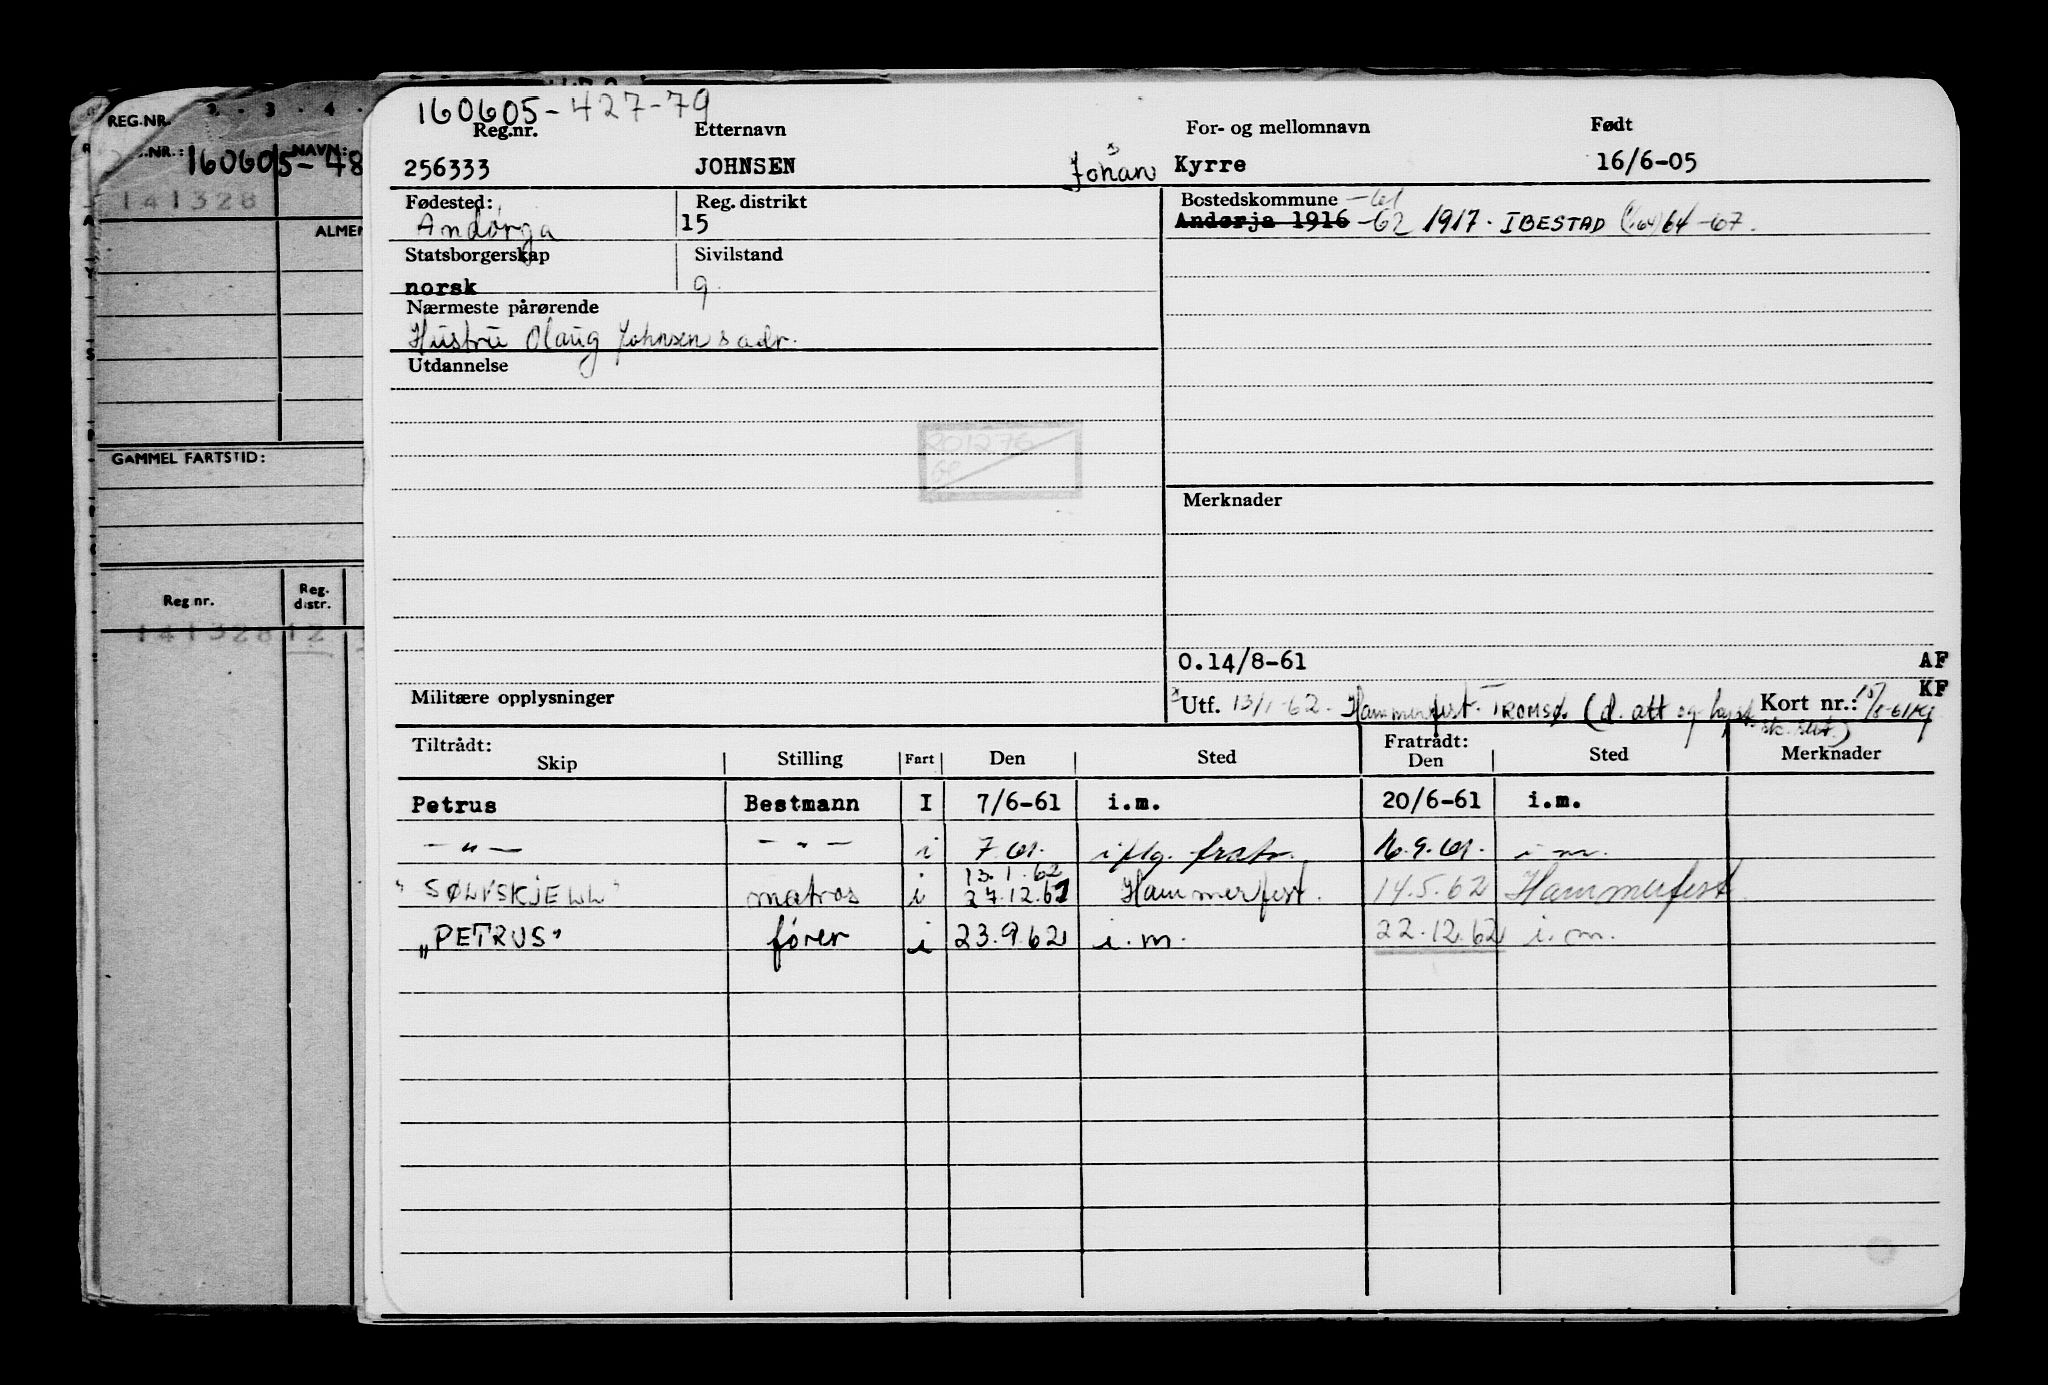 160605-427-79
Reg.nr. Etternavn For- og mellomnavn Født
256333 JOHNSEN Johan Kyrre 16/6-05
Fødested: Reg. distrikt Bostedskommune -61
Andørga 15 Andørja 1916 -62 1917 · IBESTAD (64) 64-67.
Statsborgerskap Sivilstand
norsk g
Nærmeste pårørende
Hustru Olaug Johnsen s adr.
Utdannelse
201276
Merknader
0.14/8-61 AF
KF
Militære opplysninger Utf. 13/1-62. Hammerfest - TROMSØ. (d. att og Kort nr.:
Tiltrådt: Fratrådt:
Skip Stilling Fart Den Sted Den Sted Merknader
Petrus Bestmann I 7/6-61 i.m. 20/6-61 i.m.
- " - - " - i 7.61. iflg. fratr. 16.9.61. i m.
13.1.62
"SØLVSKJELL" matros i 27.12.61 Hammerfest. 14.5.62 Hammerfest
„PETRUS" fører i 23.9.62 i.m. 22.12.62 i.m.
REG.NR. 2 · 3 · 4 ·
NR.: 160605-48 NAVN:
141328
ALMEN
GAMMEL FARTSTID:
Reg nr. Reg. distr.
141328 12